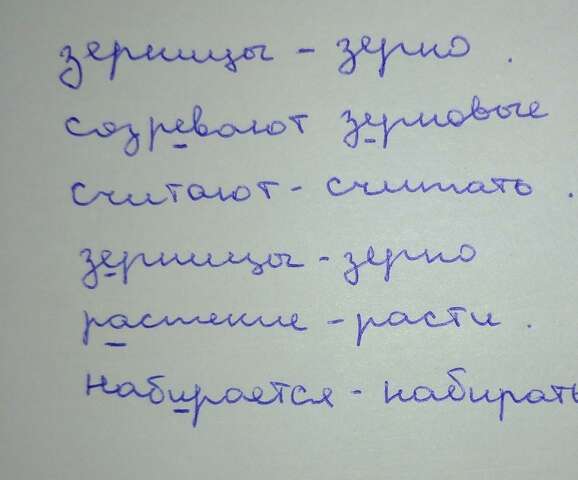 зерницы - зерно.
созревают зерновые
считают - считать.
зерницы - зерно
растение - расти.
набирается - набирать